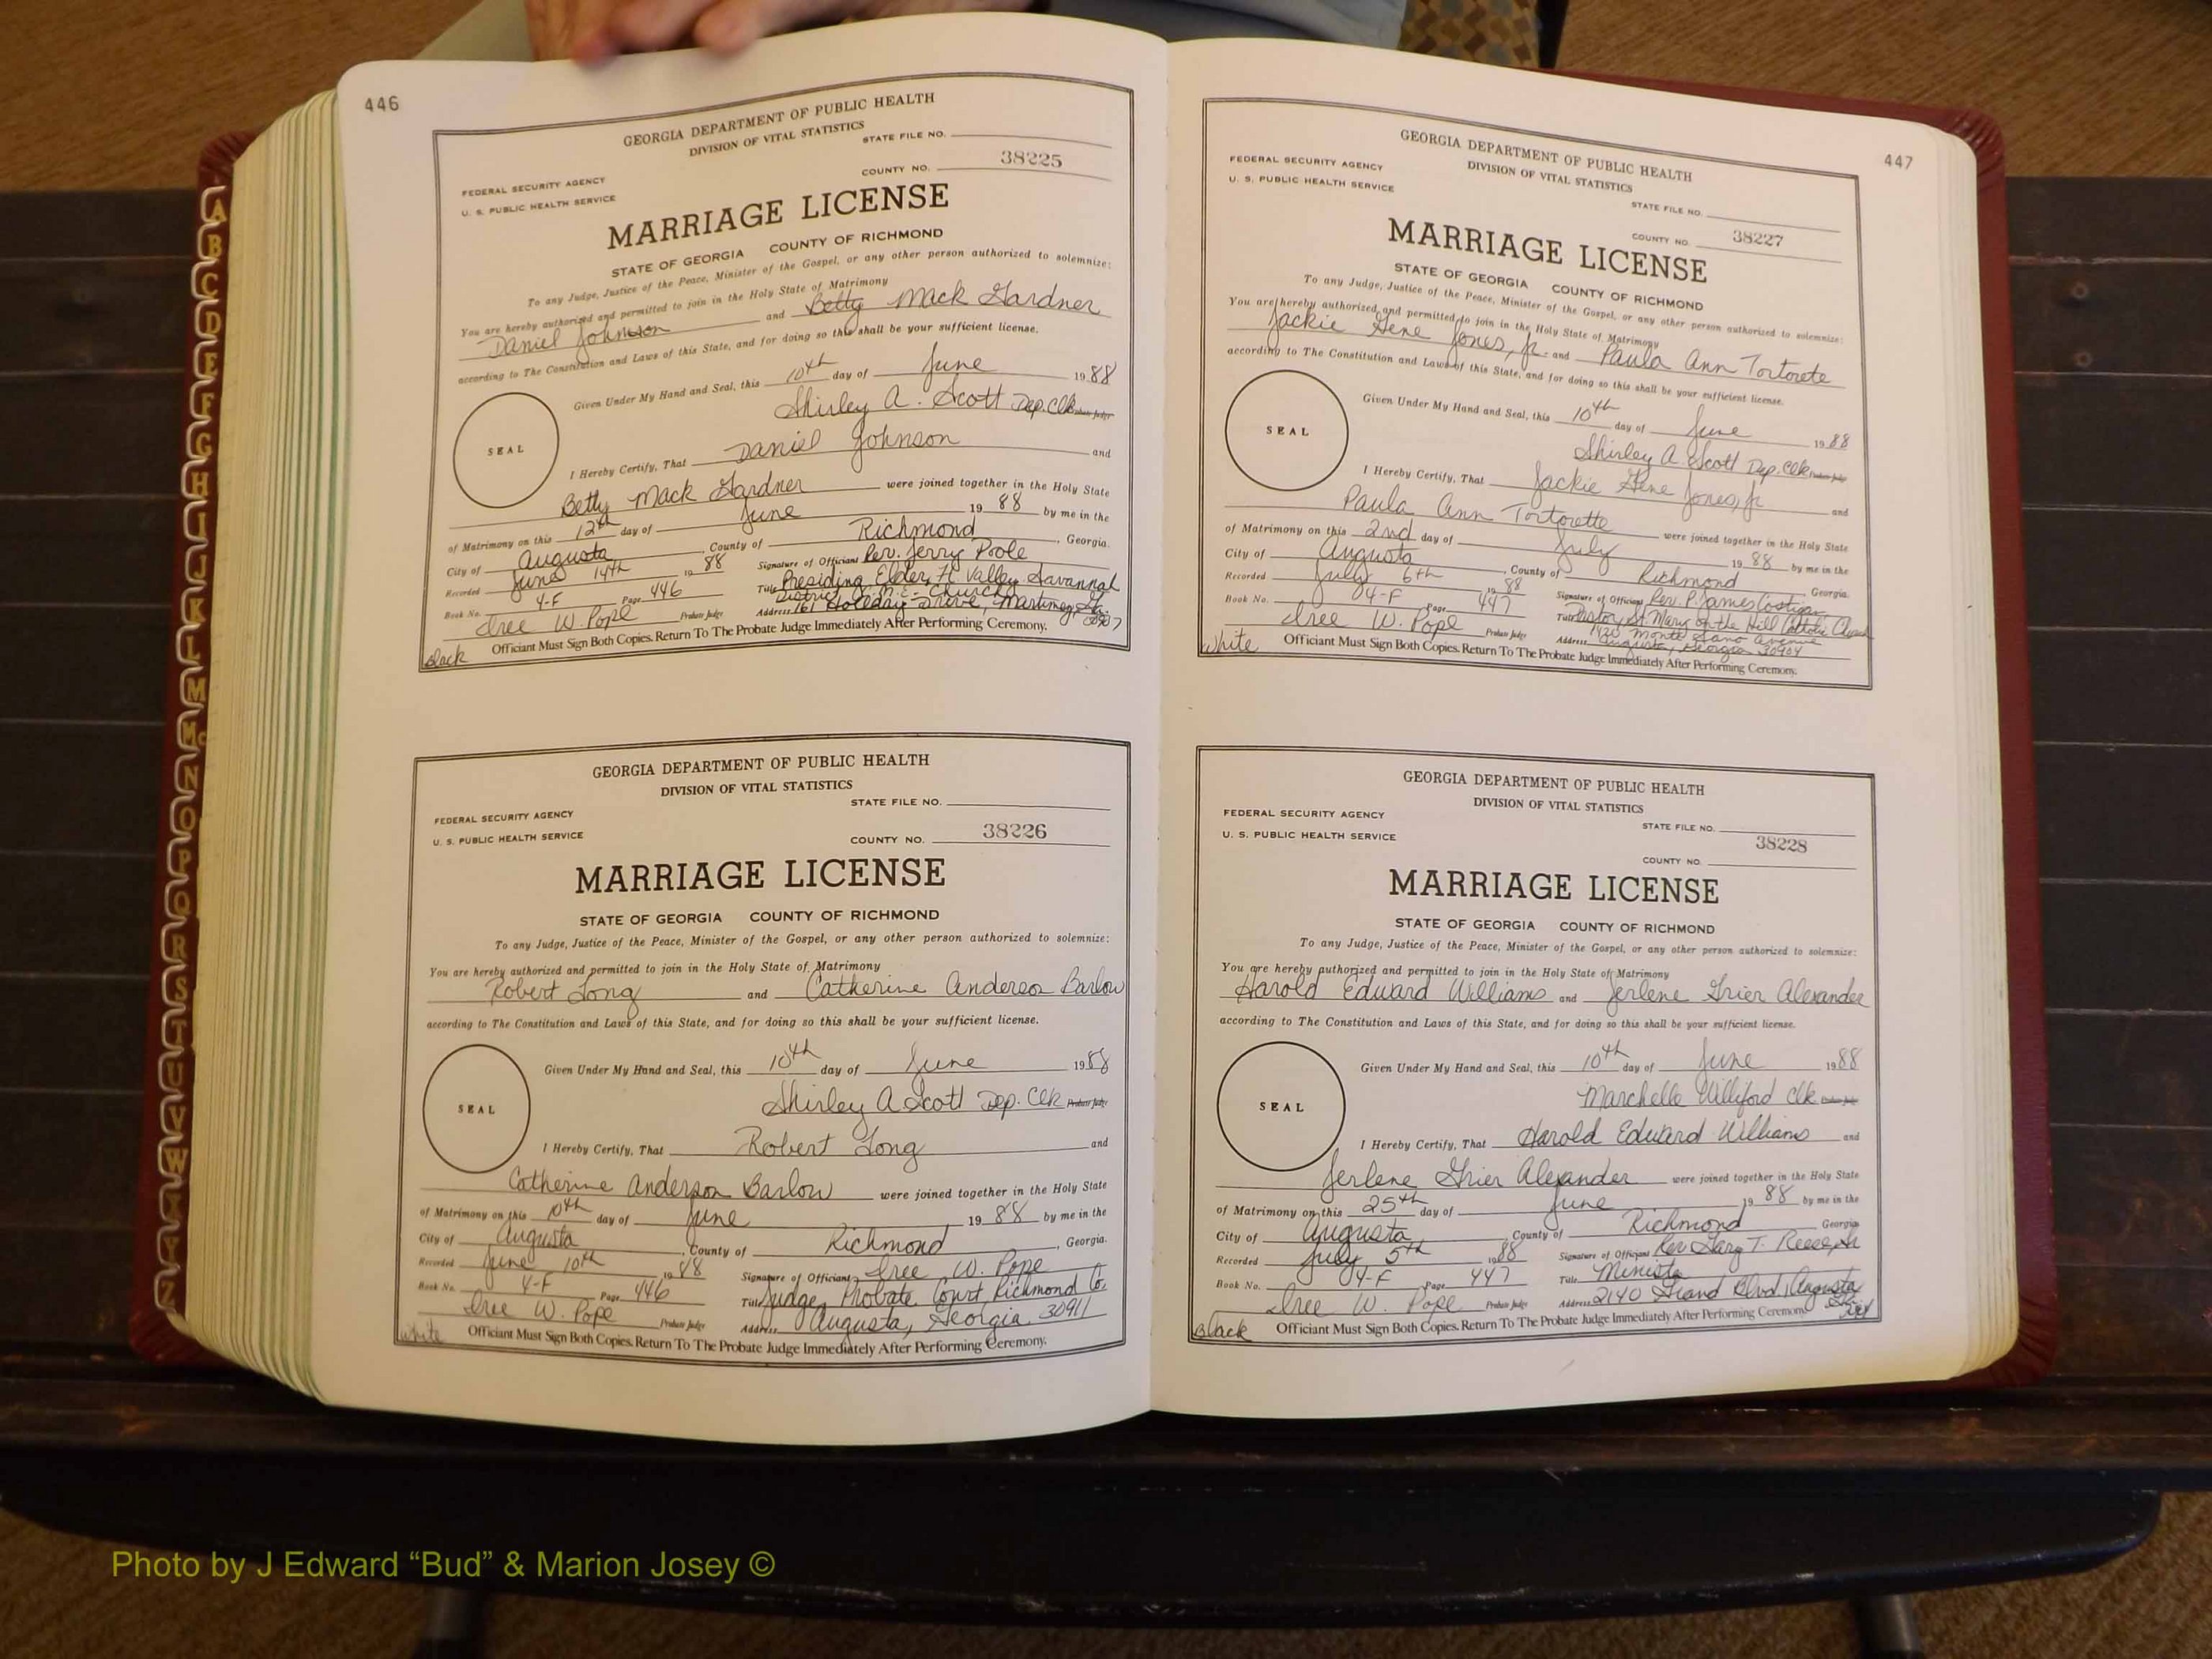 446
GEORGIA DEPARTMENT OF PUBLIC HEALTH
DIVISION OF VITAL STATISTICS
STATE FILE NO.
FEDERAL SECURITY AGENCY
COUNTY NO. 38225
U. S. PUBLIC HEALTH SERVICE
MARRIAGE LICENSE
STATE OF GEORGIA COUNTY OF RICHMOND
To any Judge, Justice of the Peace, Minister of the Gospel, or any other person authorized to solemnize:
You are hereby authorized and permitted to join in the Holy State of Matrimony
Daniel Johnson and Betty Mack Gardner
according to The Constitution and Laws of this State, and for doing so this shall be your sufficient license.
Given Under My Hand and Seal, this 10th day of June 1988
Shirley A. Scott Dep. Clk Probate Judge
SEAL
I Hereby Certify, That Daniel Johnson and
Betty Mack Gardner were joined together in the Holy State
of Matrimony on this 12th day of June 19 88 by me in the
City of Augusta, County of Richmond, Georgia.
Recorded June 14th 19 88 Signature of Officiant Rev. Jerry Poole
Book No. 4-F Page 446 Title Presiding Elder, Ft Valley Savannah
District C.M.E. Church
Iree W. Pope Probate Judge Address 161 Holiday Drive, Martinez, Ga. 30907
Black Officiant Must Sign Both Copies. Return To The Probate Judge Immediately After Performing Ceremony.
GEORGIA DEPARTMENT OF PUBLIC HEALTH
DIVISION OF VITAL STATISTICS
STATE FILE NO.
FEDERAL SECURITY AGENCY
COUNTY NO. 38226
U. S. PUBLIC HEALTH SERVICE
MARRIAGE LICENSE
STATE OF GEORGIA COUNTY OF RICHMOND
To any Judge, Justice of the Peace, Minister of the Gospel, or any other person authorized to solemnize:
You are hereby authorized and permitted to join in the Holy State of Matrimony
Robert Long and Catherine Anderson Barlow
according to The Constitution and Laws of this State, and for doing so this shall be your sufficient license.
Given Under My Hand and Seal, this 10th day of June 1988
Shirley A Scott Dep. Clk Probate Judge
SEAL
I Hereby Certify, That Robert Long and
Catherine Anderson Barlow were joined together in the Holy State
of Matrimony on this 10th day of June 19 88 by me in the
City of Augusta, County of Richmond, Georgia.
Recorded June 10th 19 88 Signature of Officiant Iree W. Pope
Book No. 4-F Page 446 Title Judge, Probate Court, Richmond Co.
Iree W. Pope Probate Judge Address Augusta, Georgia 30911
White Officiant Must Sign Both Copies. Return To The Probate Judge Immediately After Performing Ceremony.
447
GEORGIA DEPARTMENT OF PUBLIC HEALTH
DIVISION OF VITAL STATISTICS
FEDERAL SECURITY AGENCY
U. S. PUBLIC HEALTH SERVICE
STATE FILE NO.
COUNTY NO. 38227
MARRIAGE LICENSE
STATE OF GEORGIA COUNTY OF RICHMOND
To any Judge, Justice of the Peace, Minister of the Gospel, or any other person authorized to solemnize:
You are hereby authorized and permitted to join in the Holy State of Matrimony
Jackie Gene Jones, Jr. and Paula Ann Tortorete
according to The Constitution and Laws of this State, and for doing so this shall be your sufficient license.
Given Under My Hand and Seal, this 10th day of June 1988
Shirley A Scott Dep. Clk Probate Judge
SEAL
I Hereby Certify, That Jackie Gene Jones, Jr and
Paula Ann Tortorette were joined together in the Holy State
of Matrimony on this 2nd day of July 19 88 by me in the
City of Augusta, County of Richmond Georgia.
Recorded July 6th 19 88 Signature of Officiant Rev. P. James Costigan
Book No. 04-F Page 447 Title Pastor, St. Mary on the Hill Catholic Church
Iree W. Pope Probate Judge Address 1420 Monte Sano Avenue
Augusta, Georgia 30904
White Officiant Must Sign Both Copies. Return To The Probate Judge Immediately After Performing Ceremony.
GEORGIA DEPARTMENT OF PUBLIC HEALTH
DIVISION OF VITAL STATISTICS
FEDERAL SECURITY AGENCY
STATE FILE NO.
U. S. PUBLIC HEALTH SERVICE
38228
COUNTY NO.
MARRIAGE LICENSE
STATE OF GEORGIA COUNTY OF RICHMOND
To any Judge, Justice of the Peace, Minister of the Gospel, or any other person authorized to solemnize:
You are hereby authorized and permitted to join in the Holy State of Matrimony
Harold Edward Williams and Jerlene Grier Alexander
according to The Constitution and Laws of this State, and for doing so this shall be your sufficient license.
Given Under My Hand and Seal, this 10th day of June 1988
Marchelle Williford Clk Probate Judge
SEAL
I Hereby Certify, That Harold Edward Williams and
Jerlene Grier Alexander were joined together in the Holy State
of Matrimony on this 25th day of June 19 88 by me in the
City of Augusta, County of Richmond Georgia
Recorded July 5th 1988 Signature of Officiant Rev Gary T. Reese, Sr
Book No. 04-F Page 447 Title Minister
Iree W. Pope Probate Judge Address 2140 Grand Blvd, Augusta
Black Officiant Must Sign Both Copies. Return To The Probate Judge Immediately After Performing Ceremony.
A
B
C
D
E
F
G
H
I
J
K
L
M
Mc
N
O
P
Q
R
S
T
U
V
W
X
Y
Z
Photo by J Edward “Bud” & Marion Josey ©